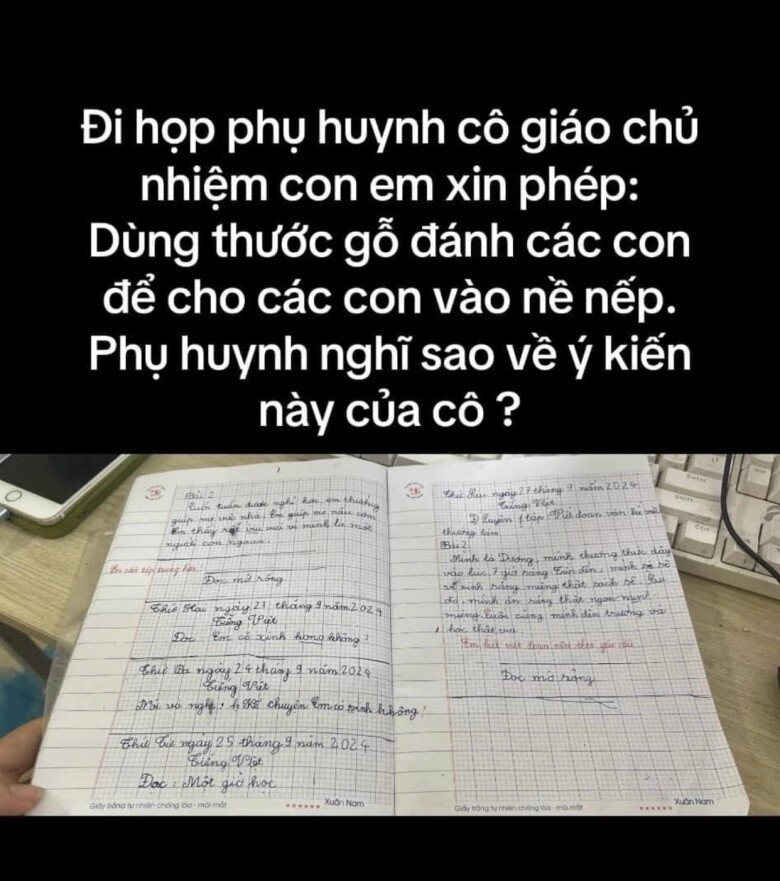 Đi họp phụ huynh cô giáo chủ
nhiệm con em xin phép:
Dùng thước gỗ đánh các con
để cho các con vào nề nếp.
Phụ huynh nghĩ sao về ý kiến
này của cô ?
Bài 2
Cuối tuần được nghỉ học em thường
giúp mẹ việc nhà. Em giúp mẹ nấu cơm
Em thấy rất vui vì mình là một
người con ngoan.
Em cần tập trung hơn!
Đọc mở rộng
Thứ Hai ngày 23 tháng 9 năm 2024
Tiếng Việt
Đọc: Em có xinh hong không ?
Thứ Ba ngày 24 tháng 9 năm 2024
Tiếng Việt
Nói và nghe: Kể chuyện Em có xinh không!
Thứ Tư ngày 25 tháng 9 năm 2024
Tiếng Việt
Đọc: Một giờ học
Giấy trắng tự nhiên chống lóa - mỏi mắt
Xuân Nam
Thứ Sáu ngày 27 tháng 9 năm 2024
Tiếng Việt
Luyện tập: Viết đoạn văn kể việc
thường làm
Bài 2
Mình là Dương, mình thường thức dậy
vào lúc 7 giờ sáng. Đầu tiên, mình sẽ
vệ sinh răng miệng thật sạch sẽ. Sau
đó, mình ăn sáng thật ngon
miệng. Cuối cùng mình đến trường và
học thật vui.
Em biết viết đoạn văn theo yêu cầu
Đọc mở rộng
Giấy trắng tự nhiên chống lóa - mỏi mắt
Xuân Nam
Enter
Shift
Ctrl